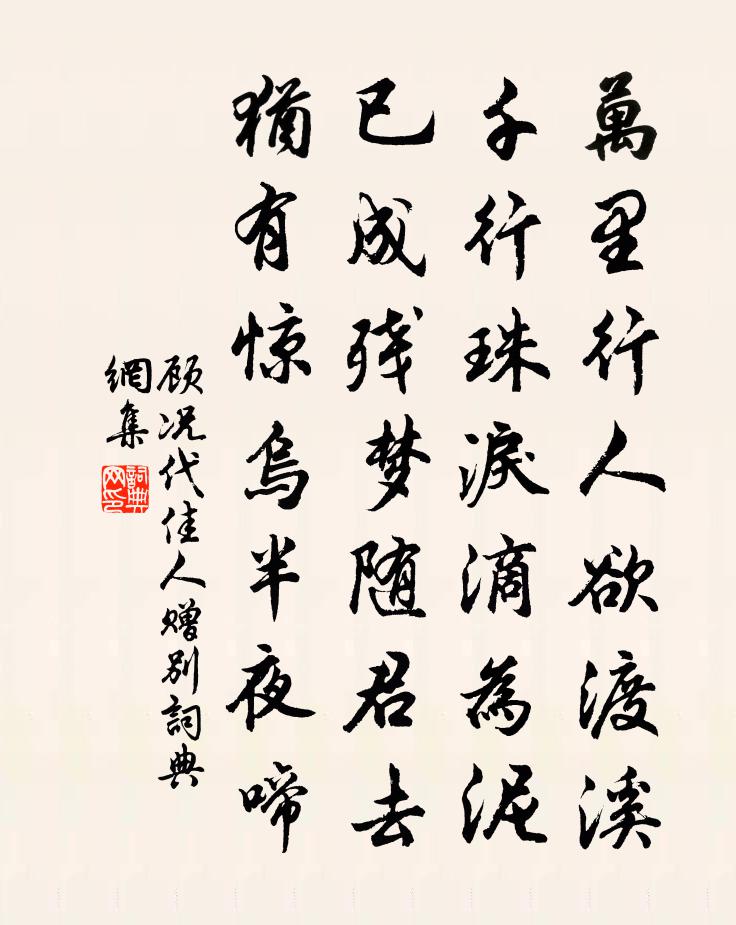 萬里行人欲渡溪
千行珠淚滴為泥
已成残梦随君去
猶有惊烏半夜啼
顾况代佳人赠别詞典
網集
詞典
网印